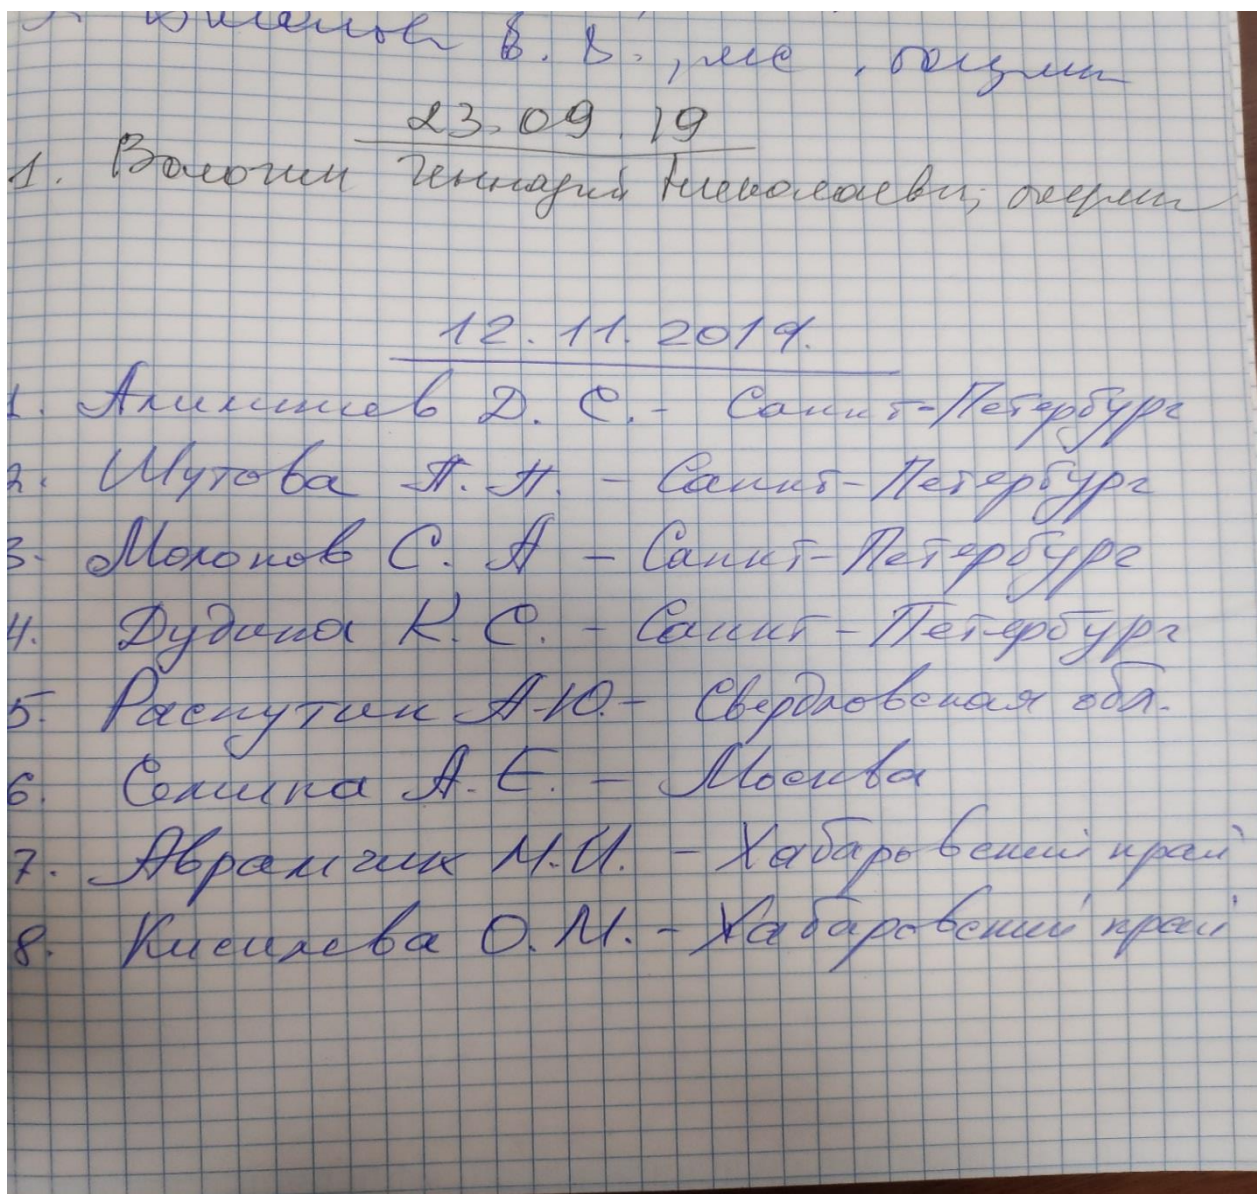 В. В., мс, очумп
23.09.19
1. Волочим Геннадий Николаеви,
12.11.2019.
1. Алимшев Д. С. - Санкт-Петербург
2. Шутова П. Н. - Санкт-Петербург
3. Молонов С. А - Санкт-Петербург
4. Дудина К. С. - Санкт-Петербург
5. Распутин А.Ю. - Свердловская обл.
6. Семина А. Е. - Москва
7. Аврамчик М.И. - Хабаровский край
8. Кисилева О. М. - Хабаровский край